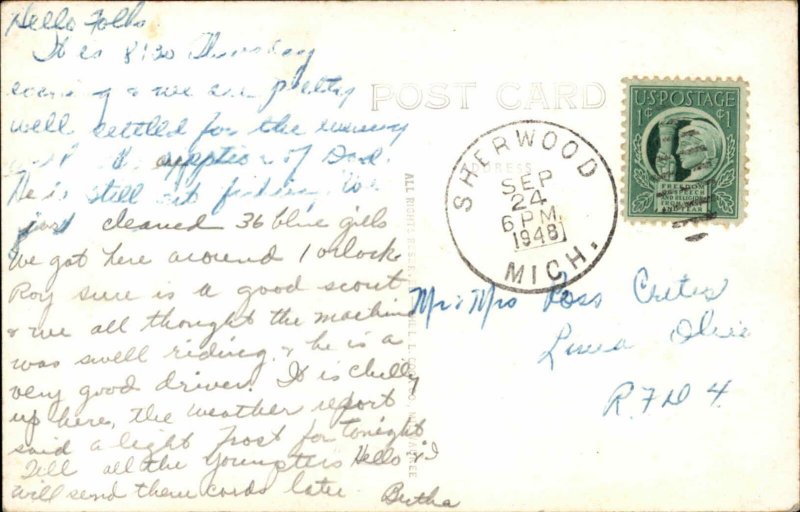 Hello Folks
It is 8:30 Thursday
evening & we are pretty
well settled for the evening
with the exception of Dad.
He is still out fishing. We
just cleaned 36 blue gills
We got here around 1 o'clock
Roy sure is a good scout
& we all thought the machine
was swell riding. & he is a
very good driver. It is chilly
up here, the weather report
said a light frost for tonight
Tell all the youngsters Hello & I
will send them cards later.
Bertha
POST CARD
ADDRESS
ALL RIGHTS RESERVED
SHERWOOD
SEP
24
6 PM
1948
MICH.
U.S. POSTAGE
1¢ ¢1
FREEDOM
OF SPEECH
AND RELIGION
FROM WANT
AND FEAR
Mr & Mrs Ross Crites
Lima Ohio
R.F.D 4.